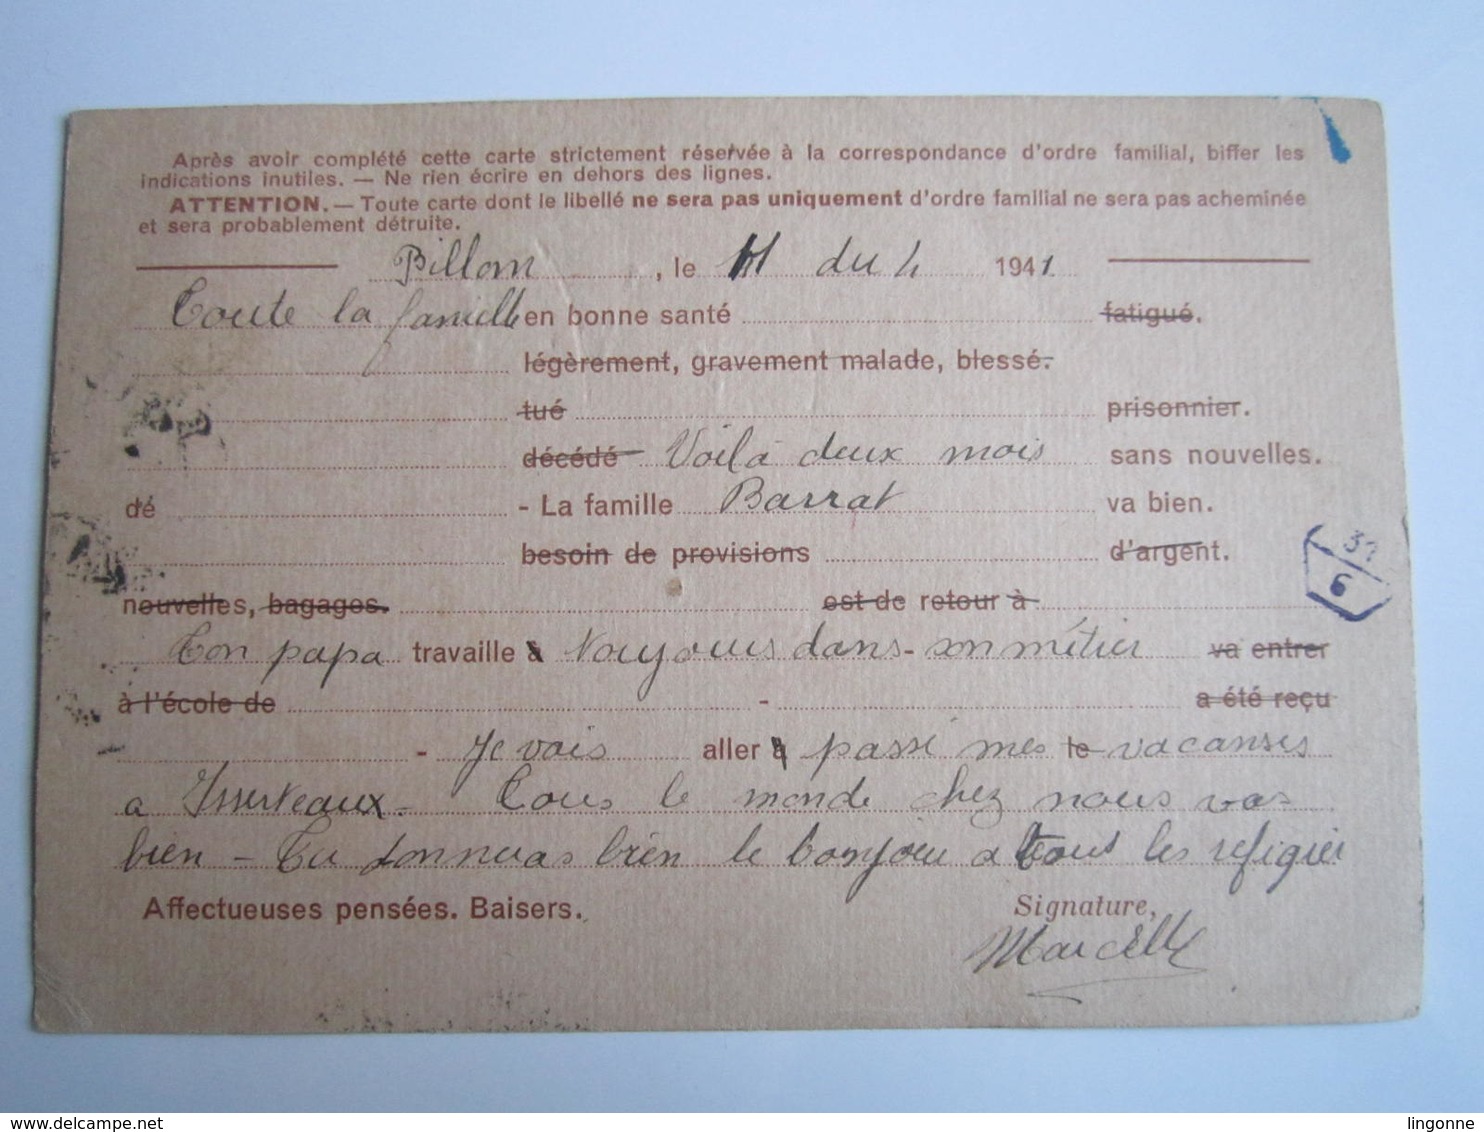 Après avoir complété cette carte strictement réservée à la correspondance d'ordre familial, biffer les
indications inutiles. — Ne rien écrire en dehors des lignes.
ATTENTION. — Toute carte dont le libellé ne sera pas uniquement d'ordre familial ne sera pas acheminée
et sera probablement détruite.
Billom, le 11 du 4 1941
Toute la famille en bonne santé fatigué.
légèrement, gravement malade, blessé.
tué prisonnier.
décédé Voilà deux mois sans nouvelles.
dé - La famille Barrat va bien.
besoin de provisions d'argent.
nouvelles, bagages. est de retour à
Ton papa travaille à Toujours dans son métier va entrer
à l'école de - a été reçu
- Je vais aller à passé mes le vacanses
a Isserteaux. Tous le monde chez nous vas
bien - Tu donneras bien le bonjou a tous les refigier
Affectueuses pensées. Baisers. Signature,
Marcelle
37
6
delcampe.net
lingonne